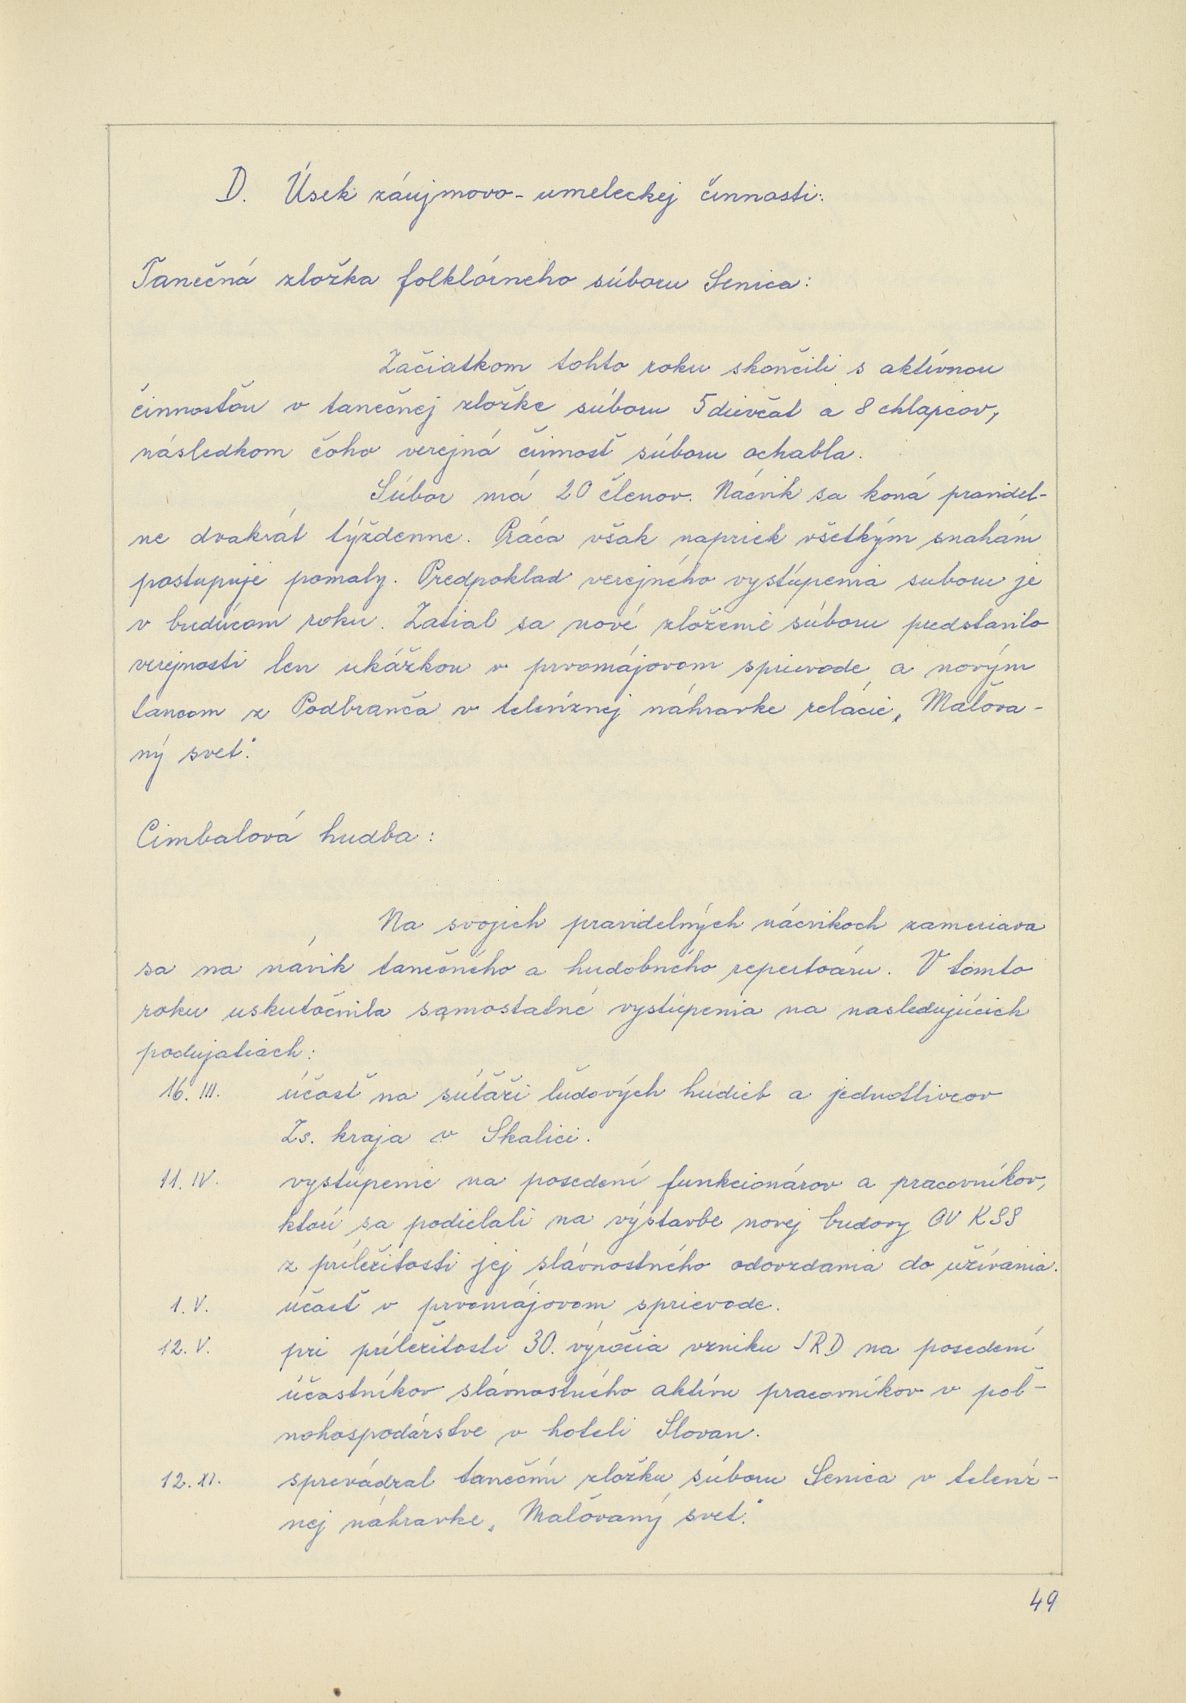 D. Úsek záujmovo-umeleckej činnosti:
Tanečná zložka folklórneho súboru Senica:
Začiatkom tohto roku skončili s aktívnou
činnosťou v tanečnej zložke súboru 5 dievčat a 8 chlapcov,
následkom čoho verejná činnosť súboru ochabla.
Súbor má 20 členov. Nácvik sa koná pravidel-
ne dvakrát týždenne. Práca však napriek všetkým snahám
postupuje pomaly. Predpoklad verejného vystúpenia suboru je
v budúcom roku. Zatial sa nové zloženie súboru predstavilo
verejnosti len ukážkou v prvomájovom sprievode a novým
tancom z Podbranča v televíznej náhravke relácie „Maľova-
ný svet."
Cimbalová hudba:
Na svojich pravidelných nácvikoch zameriava
sa na návik tanečného a hudobného repertoáru. V tomto
roku uskutočnila samostatné vystúpenia na nasledujúcich
podujatiach:
16. III. účasť na súťaži ľudových hudieb a jednotlivcov
Zs. kraja v Skalici.
11. IV. vystúpenie na posedení funkcionárov a pracovníkov,
ktorí sa podielali na výstavbe novej budovy OV KSS
z príležitosti jej slávnostného odovzdania do užívania.
1. V. účasť v prvomájovom sprievode.
12. V. pri príležitosti 30. výročia vzniku JRD na posedení
účastníkov slávnostného aktívu pracovníkov v poľ-
nohospodárstve v hoteli Slovan.
12. XI. sprevádzal tanečnú zložku súboru Senica v televíz-
nej náhravke „Maľovaný svet."
49